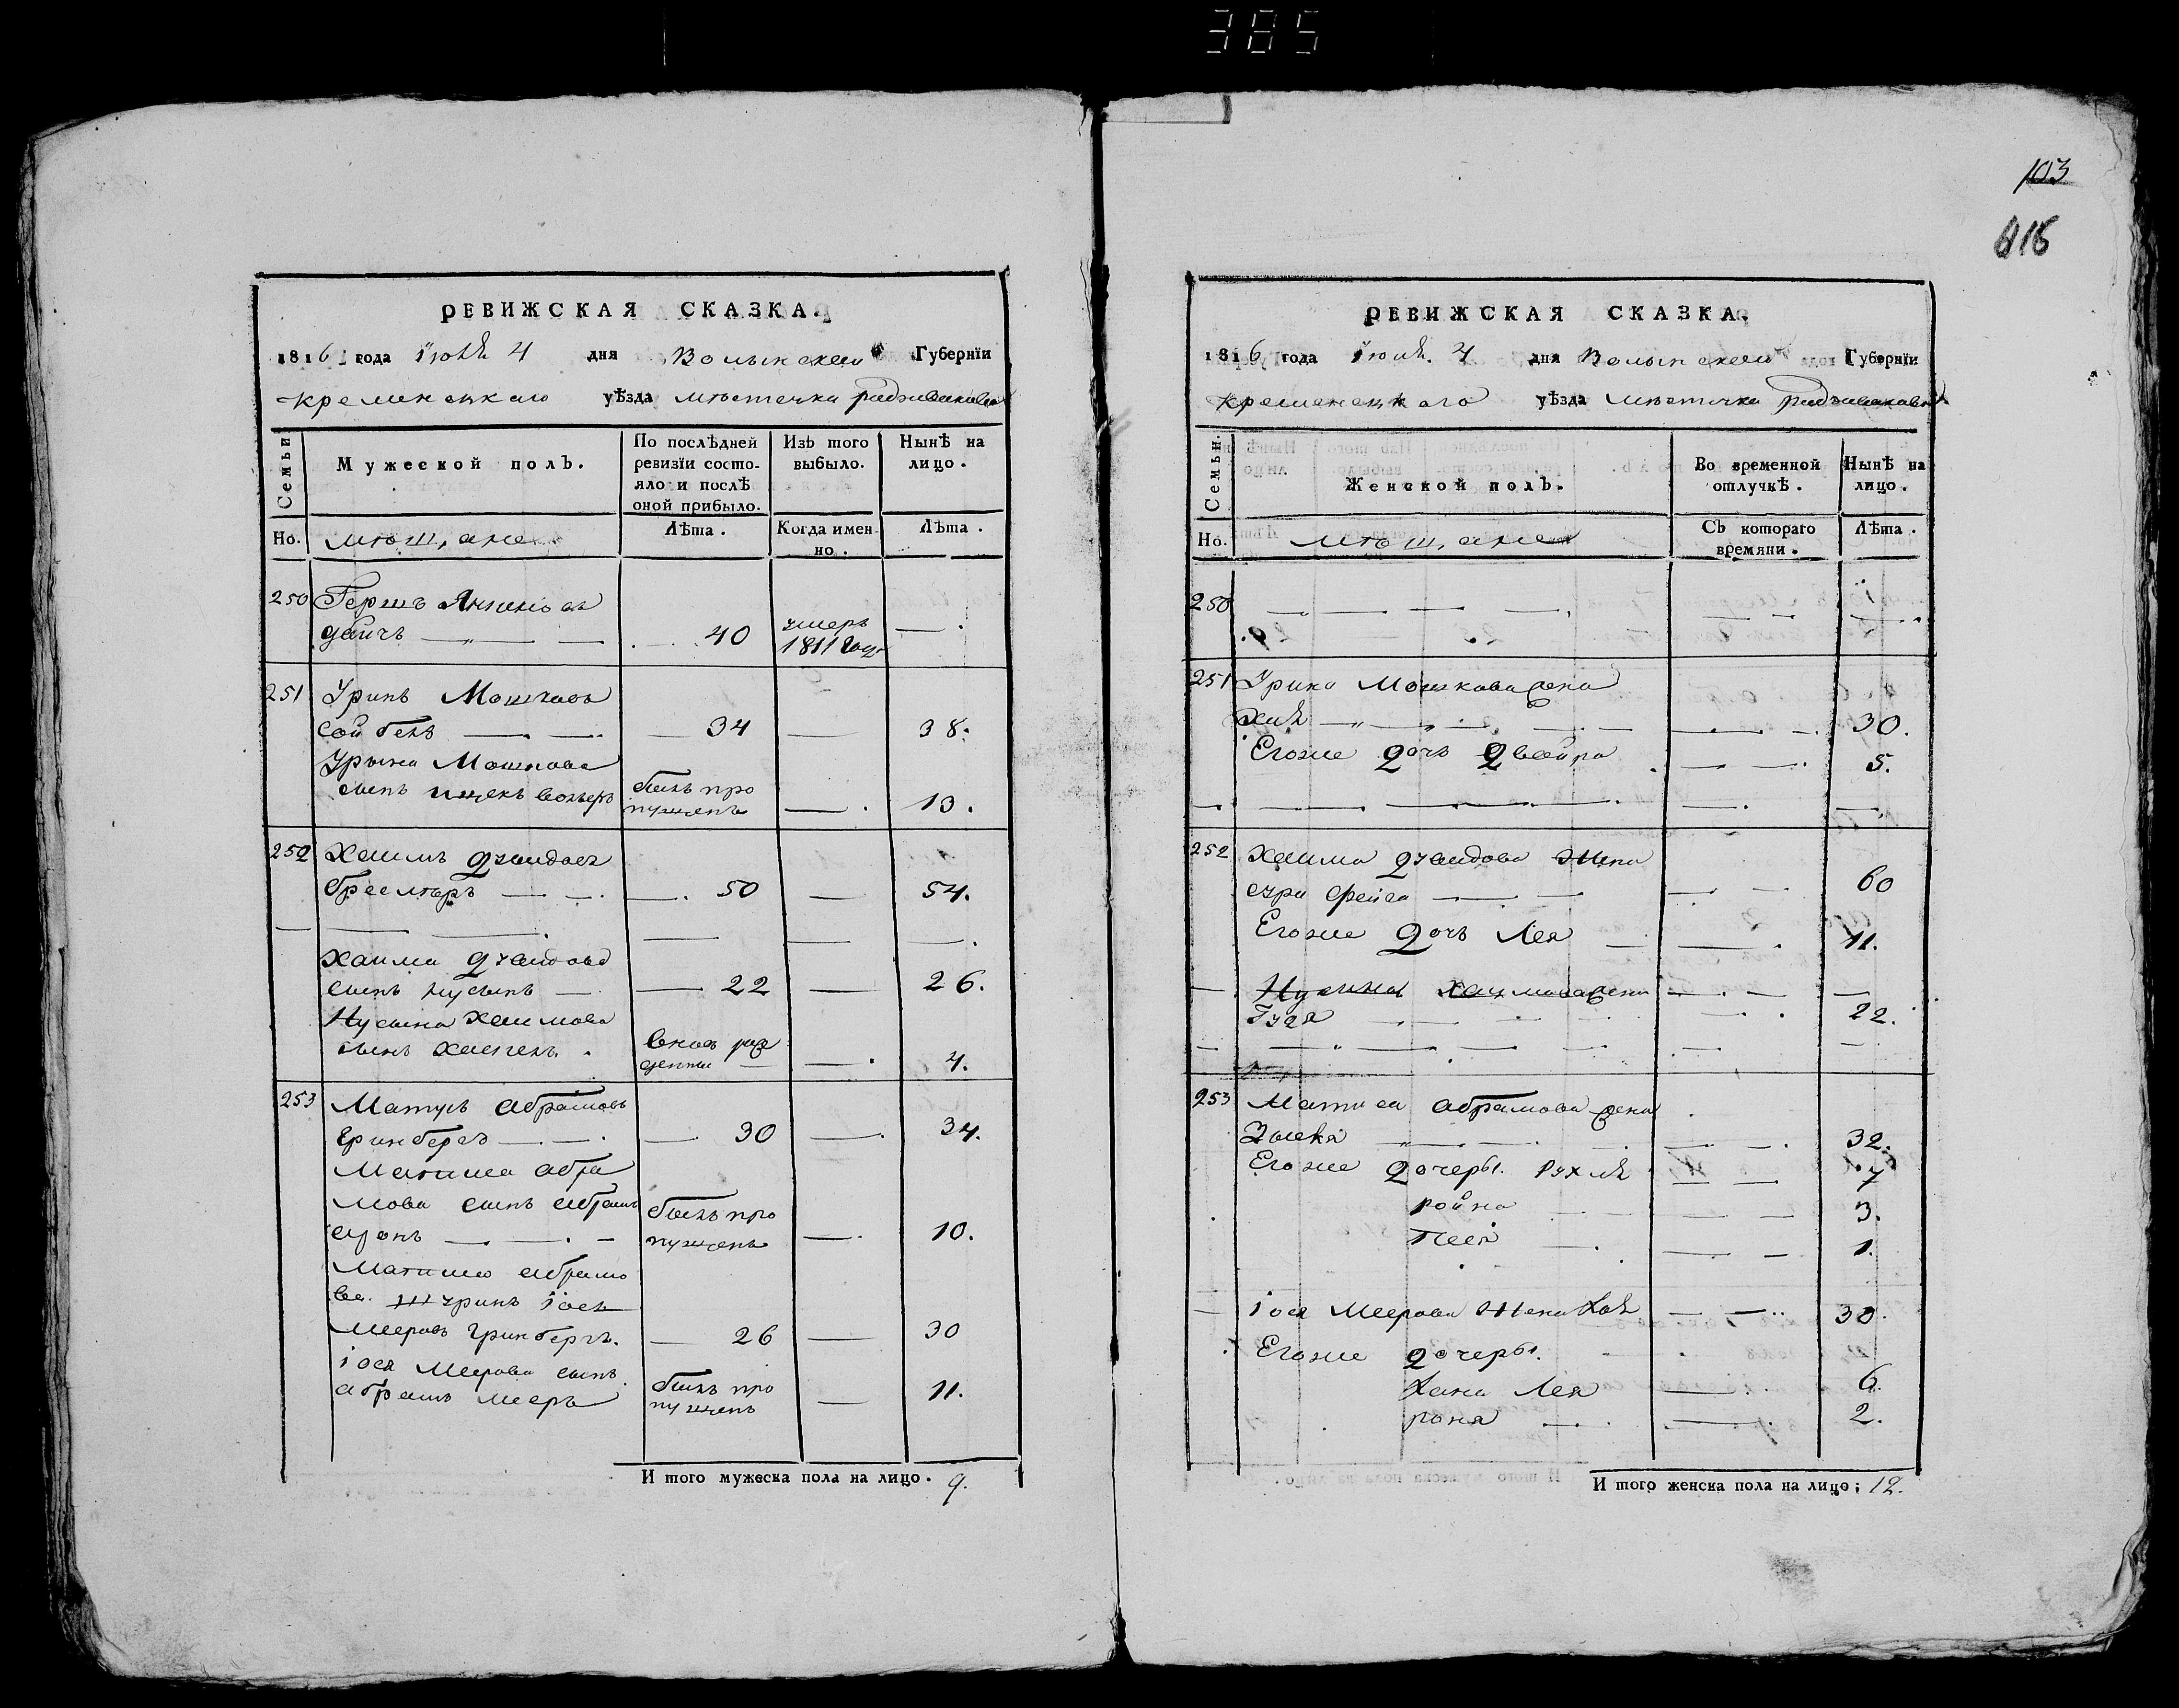 385
РЕВИЖСКАЯ СКАЗКА.
1816 года Іюля 4 дня Волынской Губернїи
кременецкаго уѣзда мѣстечка радзивилова
Семьи
Мужеской полъ.
По послѣдней ревизїи состояло и послѣ оной прибыло.
Изъ того выбыло.
Нынѣ на лицо.
Но.
мѣщане
Лѣта.
Когда именно.
Лѣта.
250 Гершъ
дейчъ — 40 умеръ 1811 году —
251 Уринъ Мошковъ
— 34 — 38.
Урина Мошкова
сынъ ицекъ былъ пропущенъ — 13.
252 Хаимъ
— 50 — 54.
Хаима
сынъ нусынъ — 22 — 26.
Нусына Хаимова
сынъ вновь рожденны — 4.
253 Матусъ абрамовъ
гринбергъ — 30 — 34.
абра
мова сынъ абрамъ
аронъ былъ пропущенъ — 10.
абрамо
ва шуринъ іось
мееровъ гринбергъ. — 26 — 30
іося меерова сынъ
абрамъ мееръ былъ пропущенъ — 11.
И того мужеска пола на лицо. 9.
103
116
РЕВИЖСКАЯ СКАЗКА.
1816 года Іюля. 4 дня Волынской Губернїи
кременецкаго уѣзда мѣстечка радзивилова
Семьи.
Женской полъ.
Во временной отлучкѣ.
Нынѣ на лицо.
Но.
мѣщане
Съ котораго времяни.
Лѣта.
250 — — — —
251 Урина Мошкова жена
— 30.
Егоже дочь двейра — 5.
252 хаима жена
сура фейга — 60
Егоже дочь Лея — 11.
Нусина Хаимова жена
— 22.
253 абрамова жена
— 32.
Егоже дочеры. рухля — 7
ройна — 3.
песя — 1.
іося меерова жена хая — 30.
Егоже дочеры.
хана Лея — 6.
роня — 2.
И того женска пола на лицо; 12.